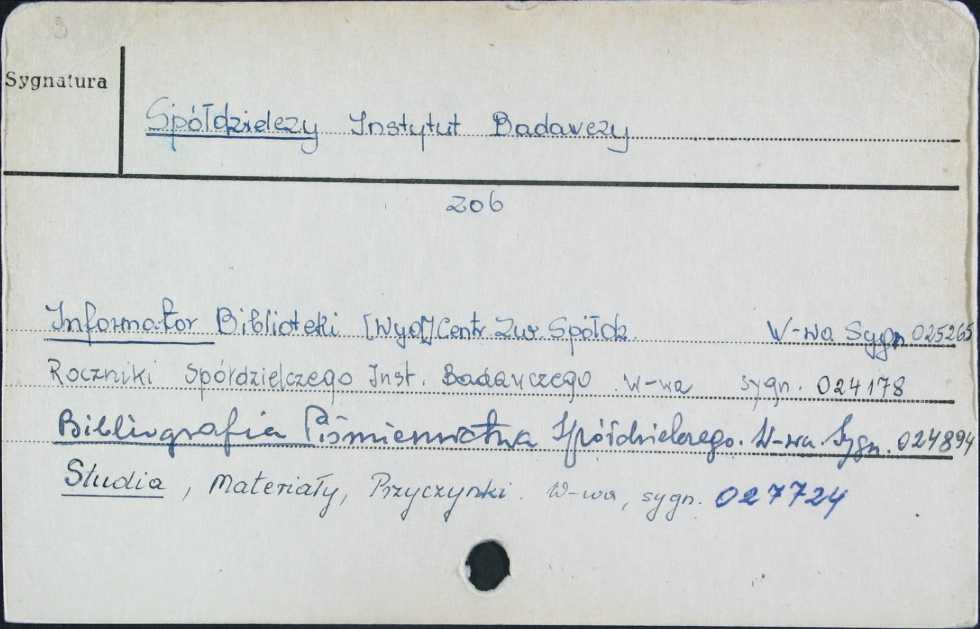 Sygnatura
Spółdzielczy Instytut Badawczy
zob
Informator Biblioteki [Wyd] Centr. Zw. Spółdz. W-wa Sygn 025265
Roczniki Spółdzielczego Inst. Badawczego W-wa sygn. 024178
Bibliografia Piśmiennictwa Spółdzielczego. W-wa. Sygn. 024894
Studia, Materiały, Przyczynki. W-wa, sygn. 027724